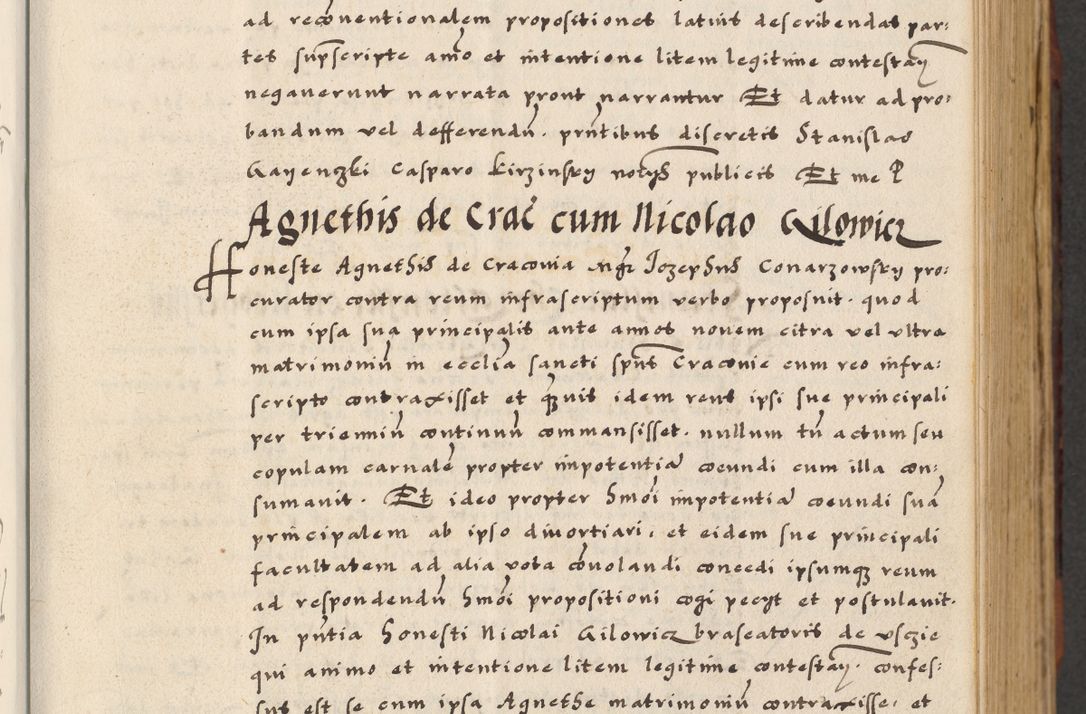 ad recōventionalem propositiones latius describendas par:
tes supscripte aīo et intentione litem legitime contestan
negaverunt narrata prout narrantur Et datur ad pro:
bandum vel defferendū. pn̄tibus discretis Stanislao
Gayenczki Casparo Kirzinsky notys publicis Et me P
Agnethis de Crac̄ cum Nicolao Gilowicz
Honeste Agnethis de Cracovia mgr Jozephus Conarzowsky pro:
curator contra reum infrascriptum verbo proposuit. quod
cum ipsa sua principalis ante annos novem citra vel ultra
matrimoniū in ecclīa sancti spūs Cracovie cum reo infra:
scripto contraxisset et q̄vis idem reus ipsi sue principali
per trienniū continuū commansisset. nullum tn̄ actum seu
copulam carnalē propter impotentiā coeundi cum illa con:
sumavit. Et ideo propter hmōi impotentiā coeundi suā
principalem ab ipso divortiari, et eidem sue principali
facultatem ad alia vota cōvolandi concedi ipsumq reum
ad respondendū hmōi propositioni cogi pecyt et postulavit.
In pn̄tia honesti Nicolai Gilowicz braseatoris de Usczie
qui animo et intentione litem legitime contestan. confes:
sus est se cum ipsa Agnethe matrimoniū contraxisse, et